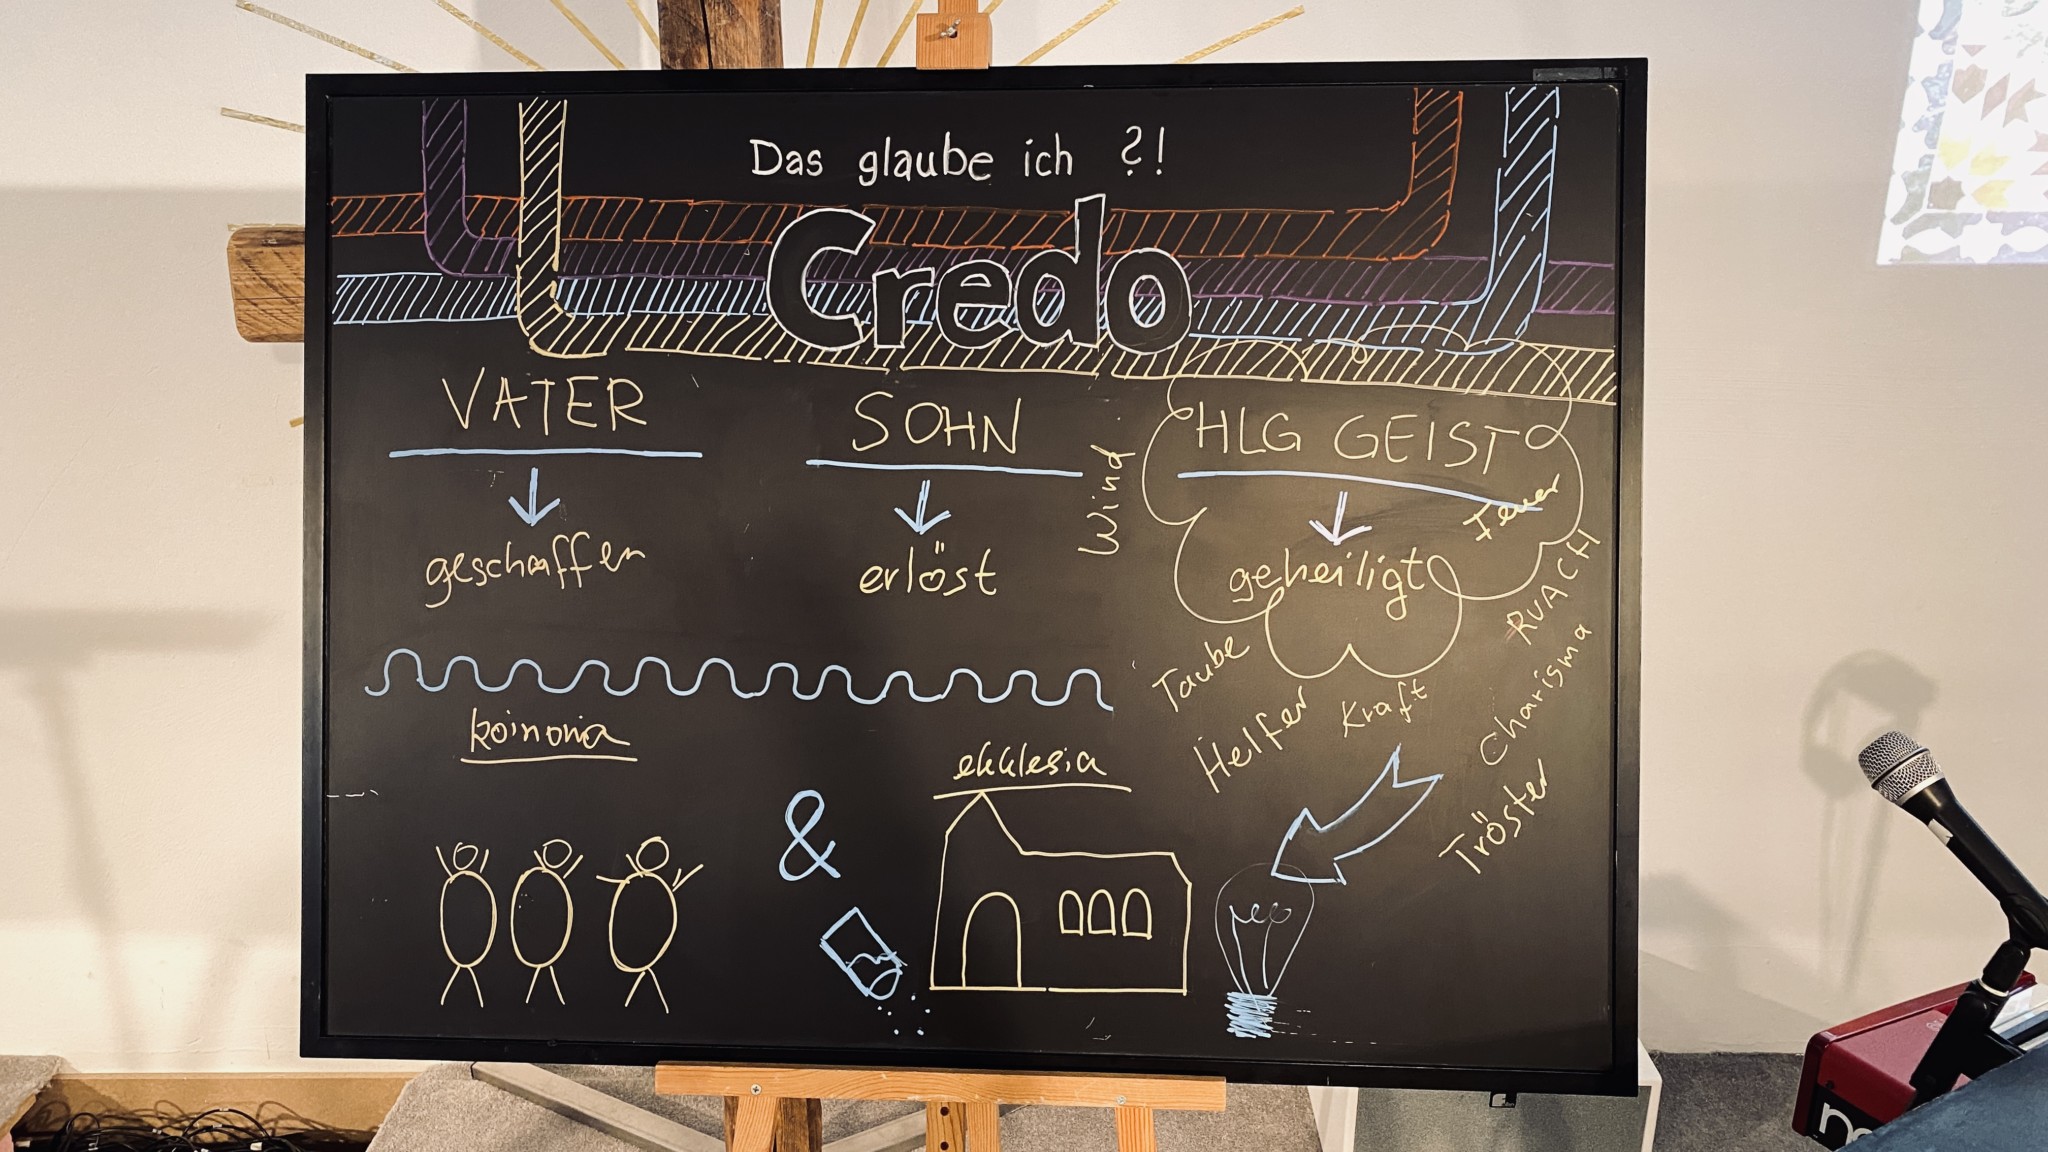 Das glaube ich ?!
Credo
VATER
SOHN
HLG GEIST
geschaffen
erlöst
geheiligt
Wind
Feuer
RUACH
Taube
Helfer
Kraft
Charisma
Tröster
koinonia
&
ekklesia